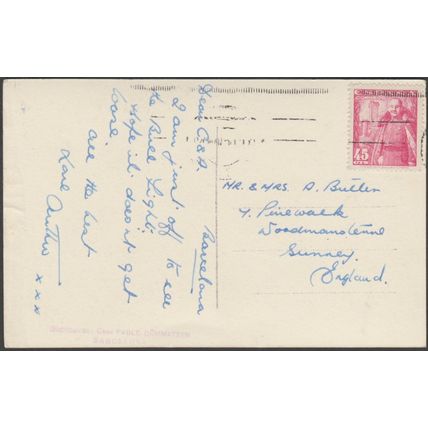 Barcelona
Dear C & A.
I am just off to see
the Bull Fight
Hope it doesn't get
loose.
all the best
Love Arthur x x x
MR. & MRS. A. Butler
4, Pinewalk
Woodmansterne
Surrey
England.
45
BARCELONA